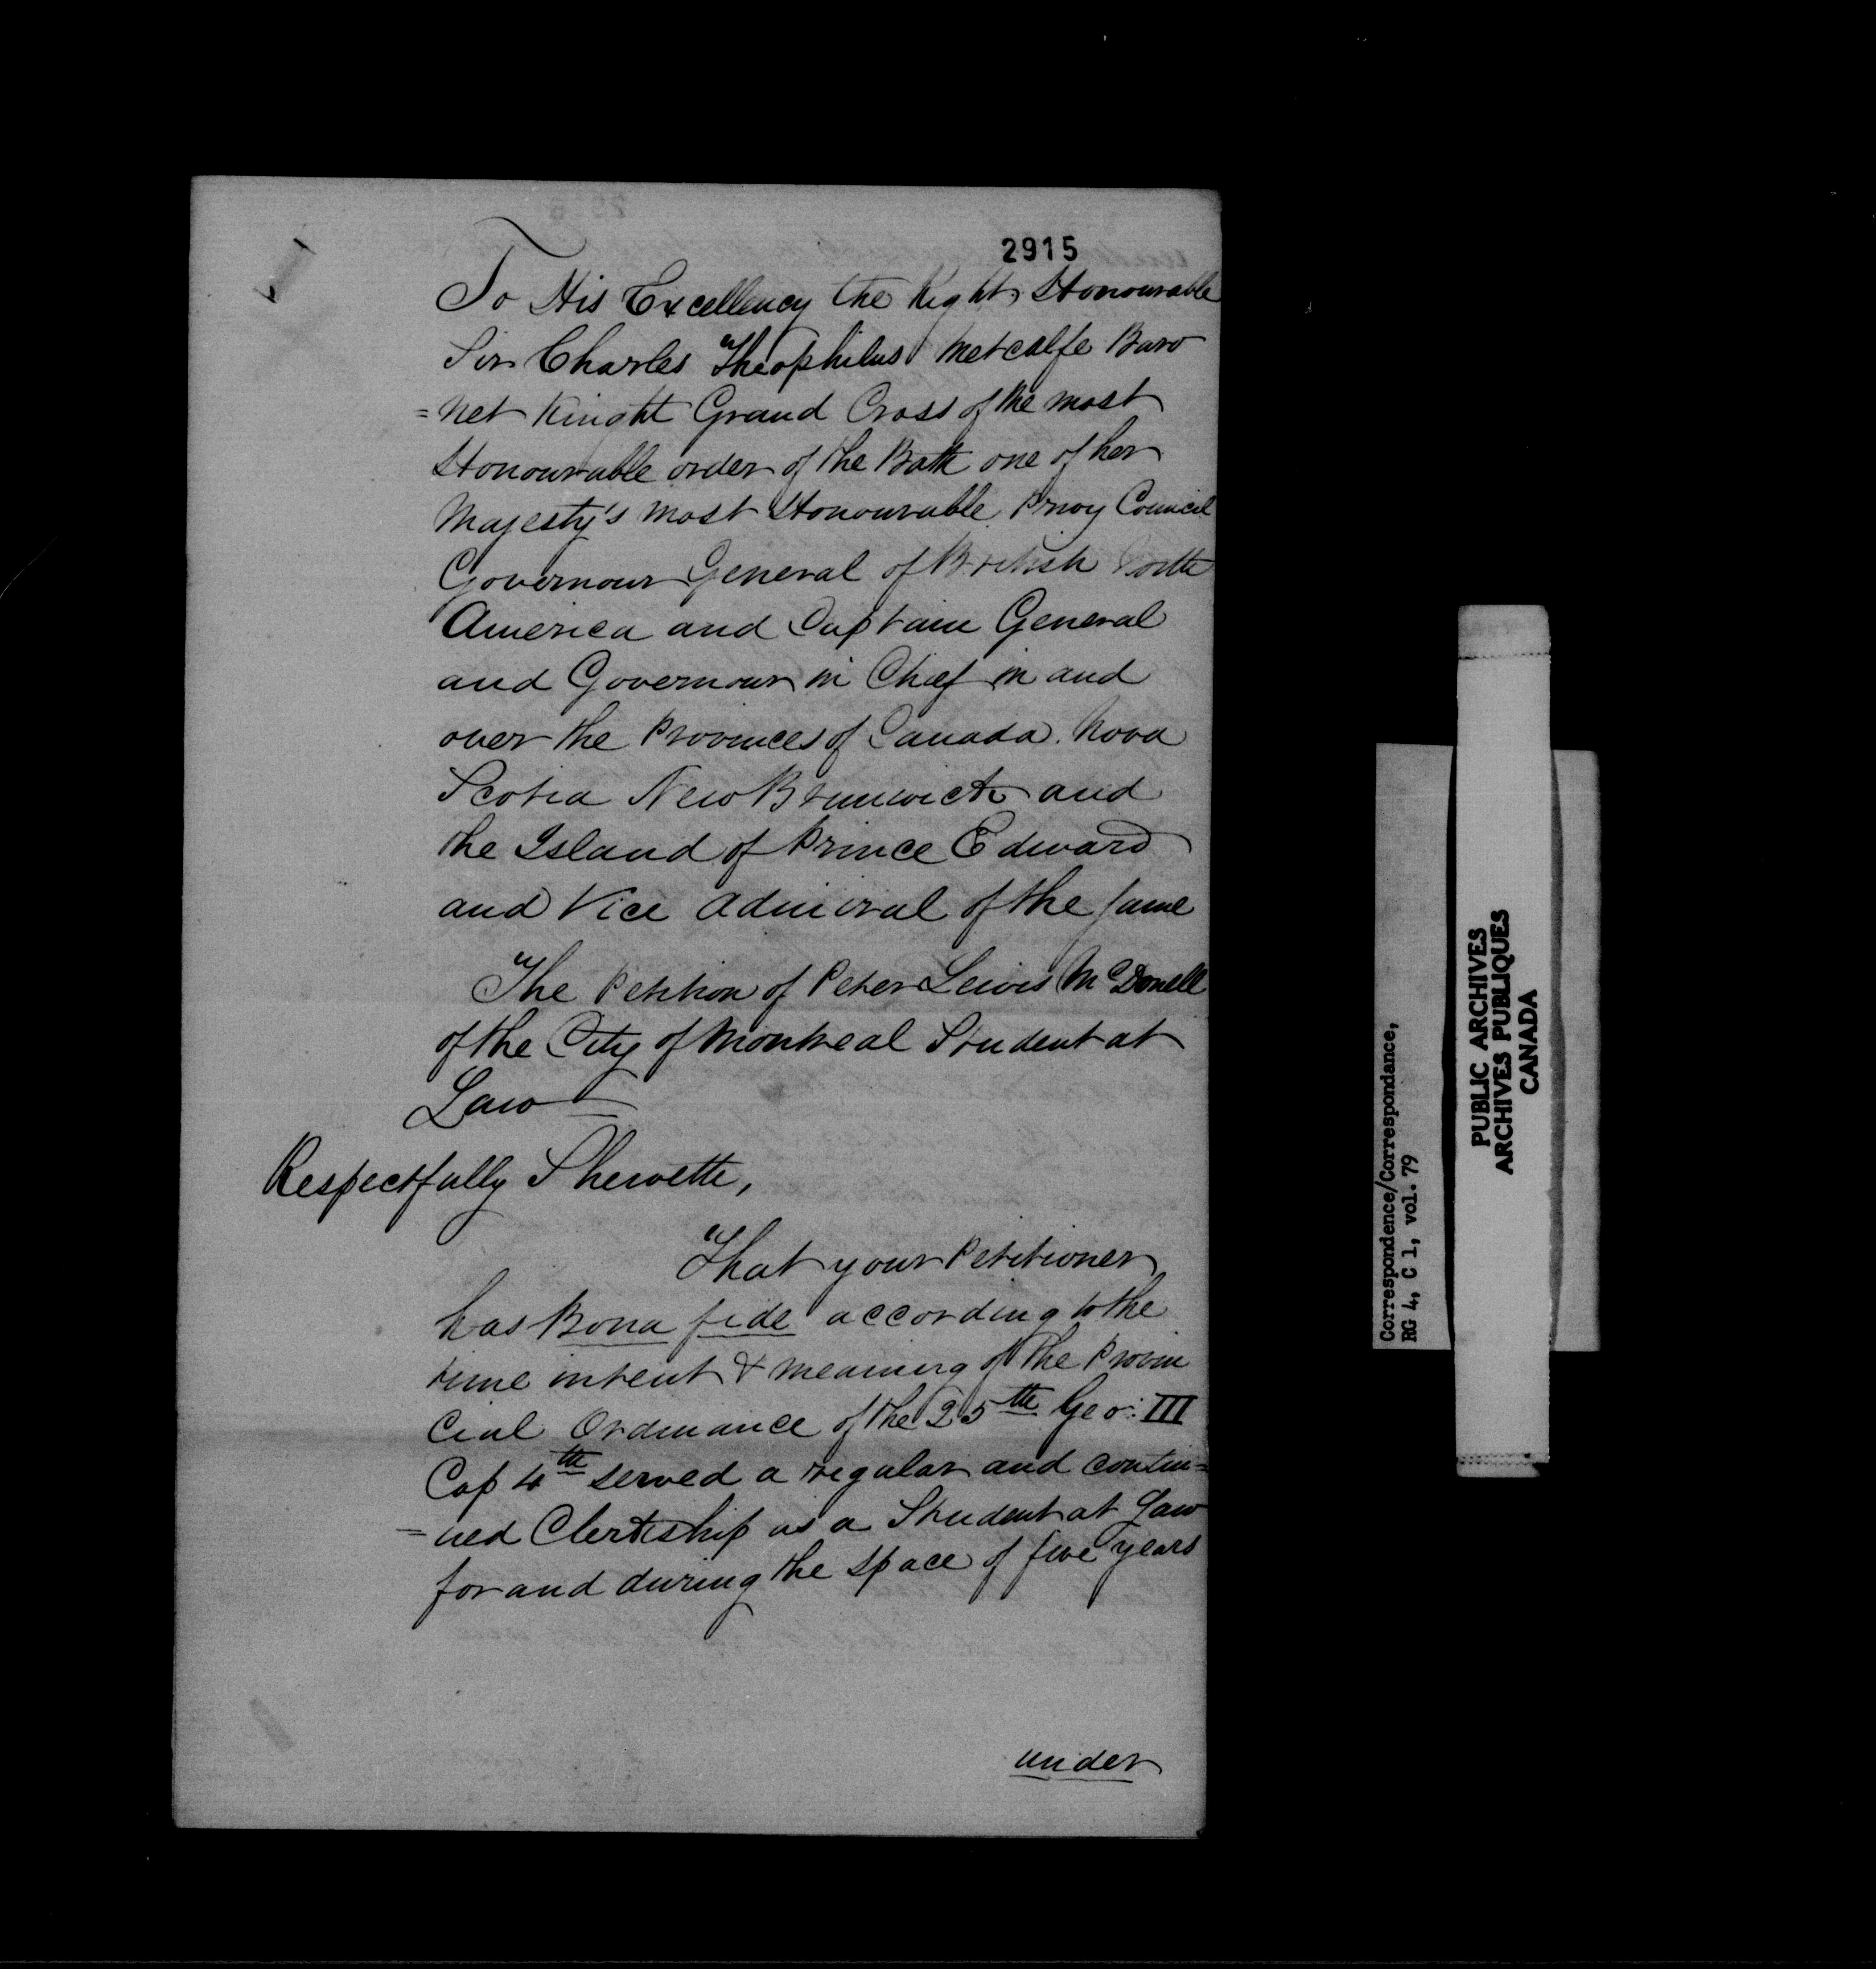 2915
To His Excellency the Right Honourable
Sir Charles Theophilus Metcalfe Baro
=net Kinght Grand Cross of the most
Honourable order of the Bath one of her
Majesty's most Honourable Privy Council
Governour General of British North
America and Captain General
and Governour in Chief in and
over the Provinces of Canada. Nova
Scotia New Brunwick and
the Island of Prince Edward
and Vice Admiral of the same
The Petition of Peter Lewis McDonell
of the City of Montreal Student at
Law
Respectfully Sheweth,
That your Petitioner
has Bona fide according to the
true intent & meaning of the Provin
cial Ordinance of the 25th Geo: III
Cap 4th served a regular and contin=
=ued Clerkship as a Student at Law
for and during the space of five years
under
Correspondence/Correspondance,
RG 4, C 1, vol. 79
PUBLIC ARCHIVES
ARCHIVES PUBLIQUES
CANADA